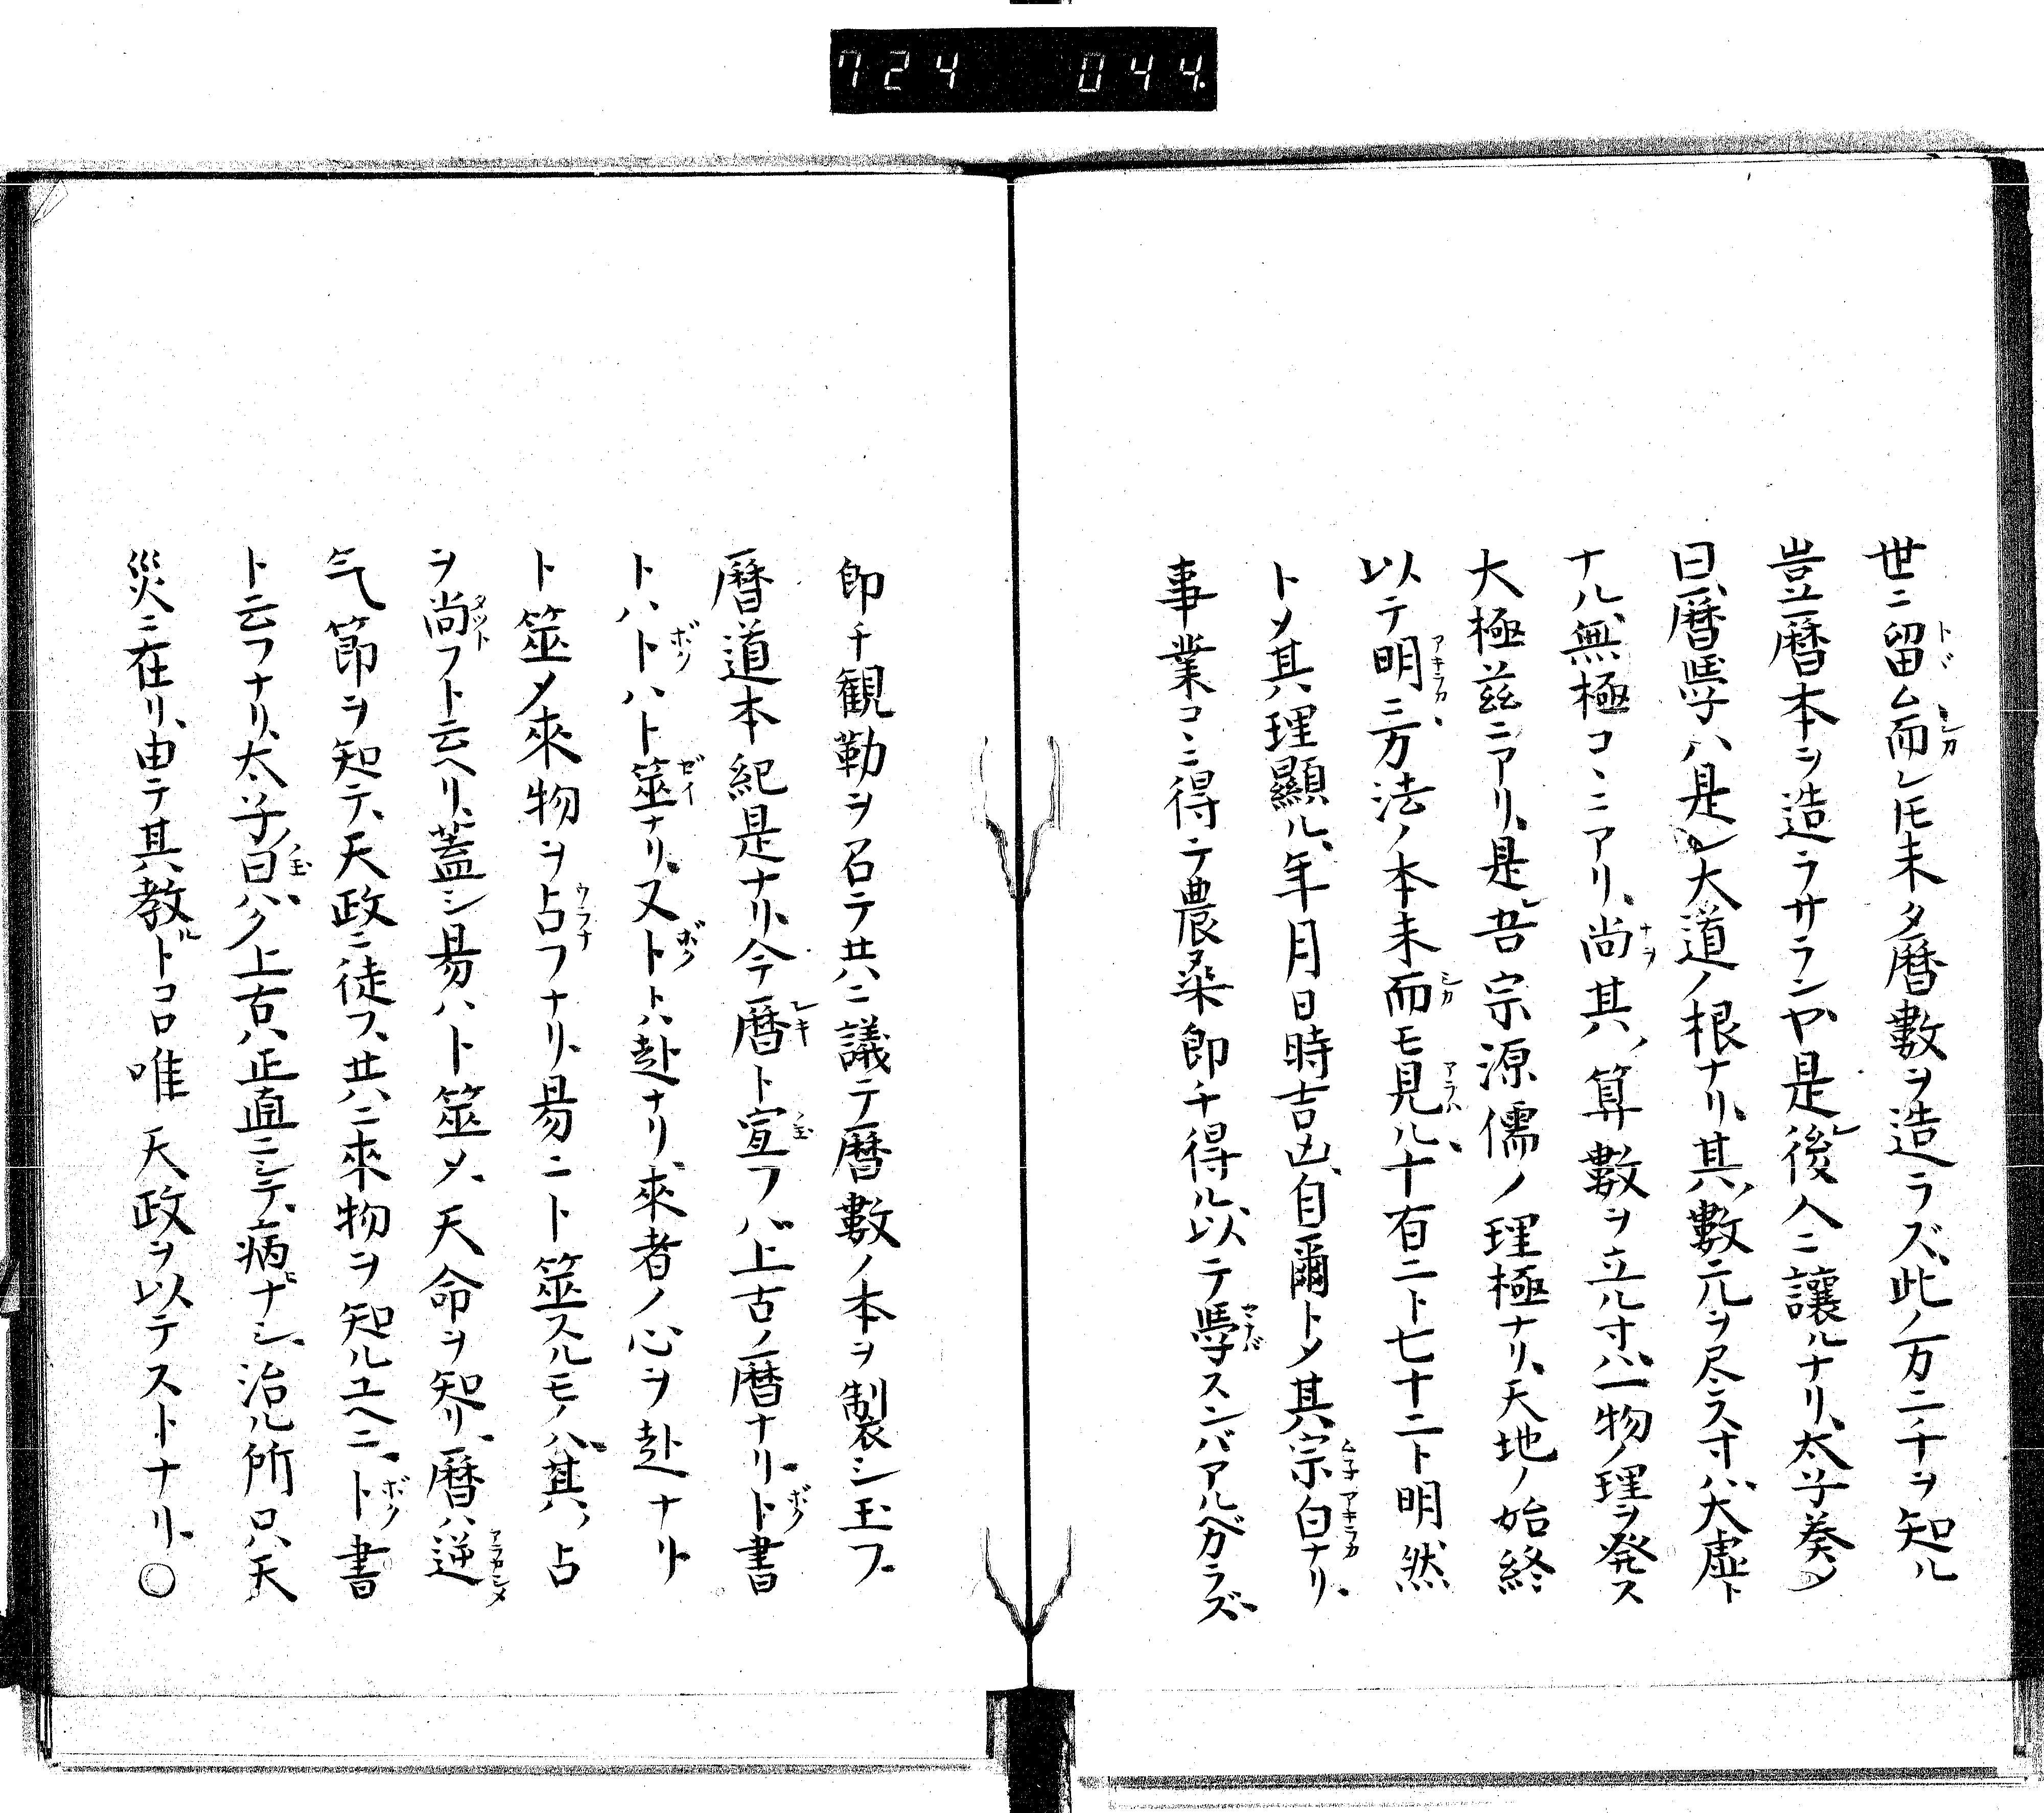 724 044
世ニ留ム而レ𪜈未タ暦數ヲ造ラズ、此ノ一万二千ヲ知ル
豈暦本ヲ造ラサランヤ、是レ後人ニ讓ルナリ、太子奏〆
曰、暦學ハ是レ大道ノ根ナリ、其ノ數元ヲ尽ス寸ハ、大虚ト
ナル、無極コヽニアリ、尚其ノ算數ヲ立ル寸ハ、一物ノ理ヲ発ス
大極茲ニアリ、是レ吾宗源儒ノ理極ナリ、天地ノ始終
以テ明ニ、万法ノ本末而モ見ル、十有二ト七十二ト明然
ト〆其ノ理顯ル、年月日時吉凶、自爾ト〆其宗白ナリ、
事業コヽニ得テ農桒即チ得ル、以テ學スンバアルベガラズ、
即チ観勒ヲ召テ共ニ議テ暦數ノ本ヲ製シ玉フ、
暦道本紀是ナリ、今暦ト宣フハ上古ノ暦ナリ、卜書
トハ、卜ハ卜筮ナリ、又卜トハ赴ナリ、來者ノ心ヲ赴ナリ
卜筮〆來物ヲ占フナリ、易ニ卜筮スルモノハ、其ノ占
ヲ尚フト云ヘリ、蓋シ易ハ卜筮〆、天命ヲ知リ、暦ハ逆
气節ヲ知テ、天政ニ徒フ、共ニ來物ヲ知ルユヘニ、卜書
ト云フナリ、太子曰ハク上古ハ正直ニシテ、病ナシ、治ル所只天
災ニ在リ、由テ其ノ教ルトコロ唯天政ヲ以テストナリ、○